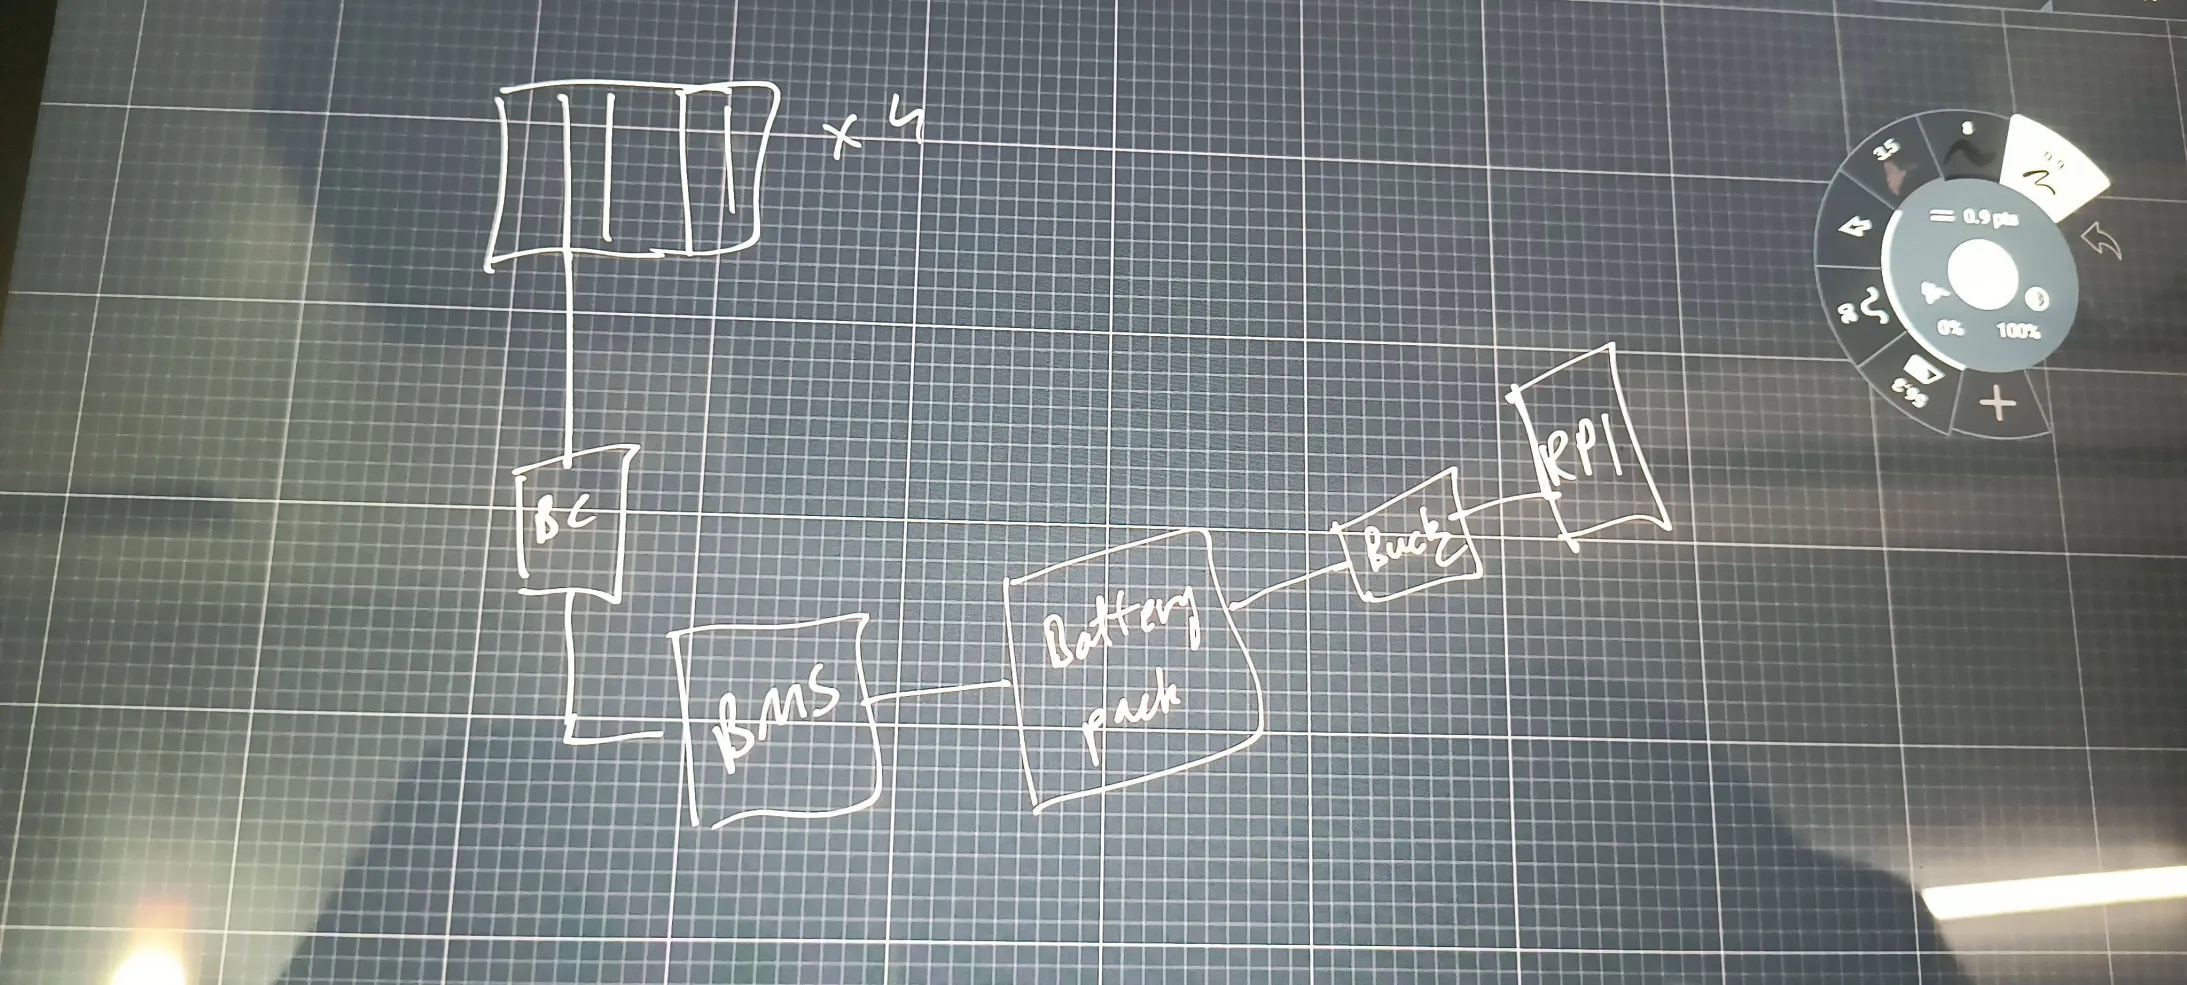 x 4
BC
BMS
Battery
pack
Buck
RPI
3.5
8
0.9
0.9 pts
0%
100%